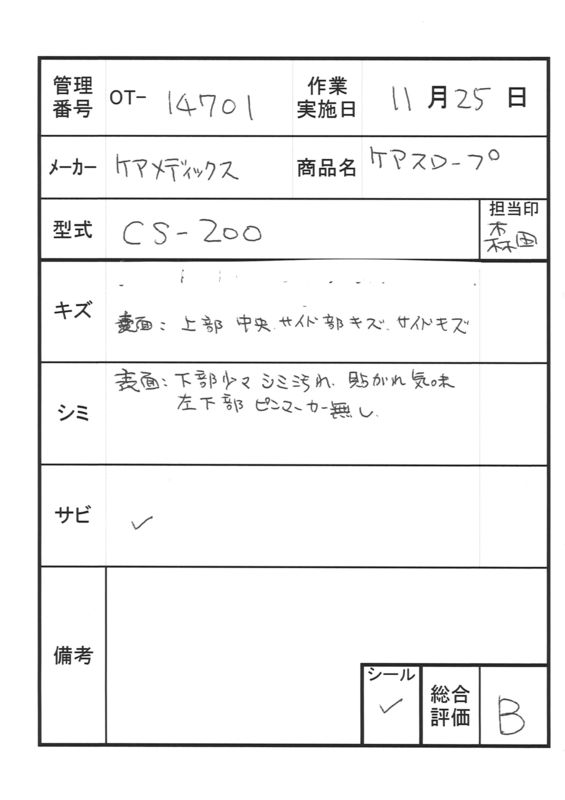 管理番号 OT- 14701 作業実施日 11月25日
メーカー ケアメディックス 商品名 ケアスロープ
型式 CS-200 担当印 森田
キズ
裏面: 上部 中央.サイド部キズ.サイドキズ
シミ 表面:下部少々シミ汚れ.貼がれ気味
左下部 ピンマーカー無し.
サビ ✓
備考
シール ✓ 総合評価 B